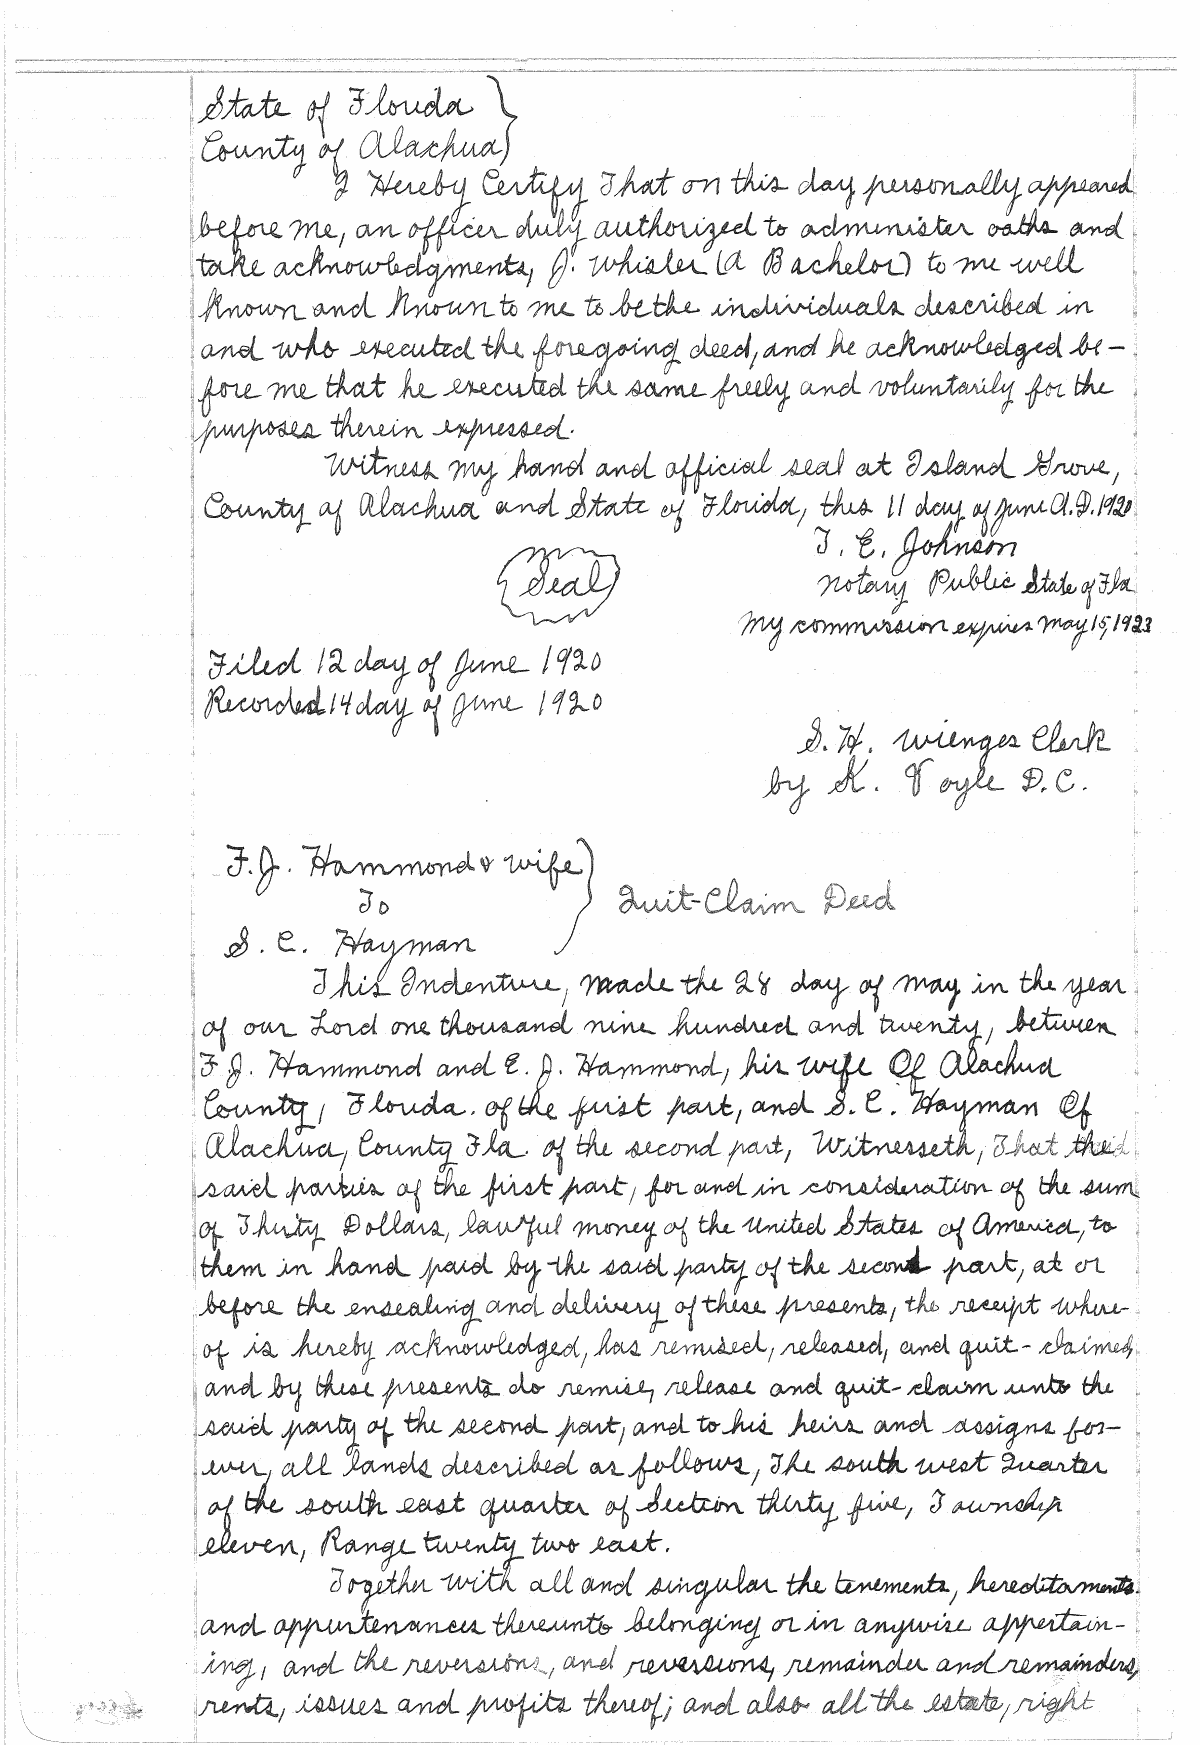 State of Florida
County of Alachua
I Hereby Certify That on this day personally appeared
before me, an officer duly authorized to administer oaths and
take acknowledgments, J. Whisler (A Bachelor) to me well
known and known to me to be the individuals described in
and who executed the foregoing deed, and he acknowledged be-
fore me that he executed the same freely and voluntarily for the
purposes therein expressed.
Witness my hand and official seal at Island Grove,
County of Alachua and State of Florida, this 11 day of June A.D. 1920
T. E. Johnson
Seal
Notary Public State of Fla
My commission expires May 15, 1923
Filed 12 day of June 1920
Recorded 14 day of June 1920
S. H. Wienges Clerk
by K. Voyle D.C.
F.J. Hammond & wife
To
Quit-Claim Deed
S. C. Hayman
This Indenture, made the 28 day of May in the year
of our Lord one thousand nine hundred and twenty, between
F J. Hammond and E. J. Hammond, his wife Of Alachua
County, Florida. of the first part, and S. C. Hayman Of
Alachua, County Fla. of the second part, Witnesseth, That the
said parties of the first part, for and in consideration of the sum
of Thirty Dollars, lawful money of the United States of America, to
them in hand paid by the said party of the second part, at or
before the ensealing and delivery of these presents, the receipt where-
of is hereby acknowledged, has remised, released, and quit-claimed,
and by these presents do remise, release and quit-claim unto the
said party of the second part, and to his heirs and assigns for-
ever, all lands described as follows, The south west Quarter
of the south east quarter of Section thirty five, Township
eleven, Range twenty two east.
Together with all and singular the tenements, hereditaments
and appurtenances thereunto belonging or in anywise appertain-
ing, and the reversions, and reversions, remainder and remainders,
rents, issues and profits thereof; and also all the estate, right